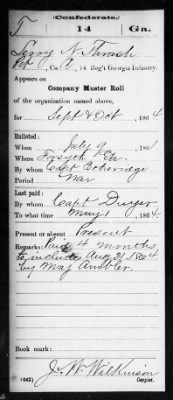 Confederate.
T 14 Ga.
Leroy N. Thrash
Pvt, Co. A, 14 Reg't Georgia Infantry.
Appears on
Company Muster Roll
of the organization named above,
for Sept & Oct, 1864
Enlisted:
When July 9, 1861
Where Forsyth Ga.
By whom Capt Etheridge
Period War
Last paid:
By whom Capt Dwyer
To what time May 1, 1864
Present or absent Present
Remarks: Paid 4 months
to include Aug 31 1864
by Maj Ambler.
Book mark:
J. W. Wilkinson
(642) Copyist.